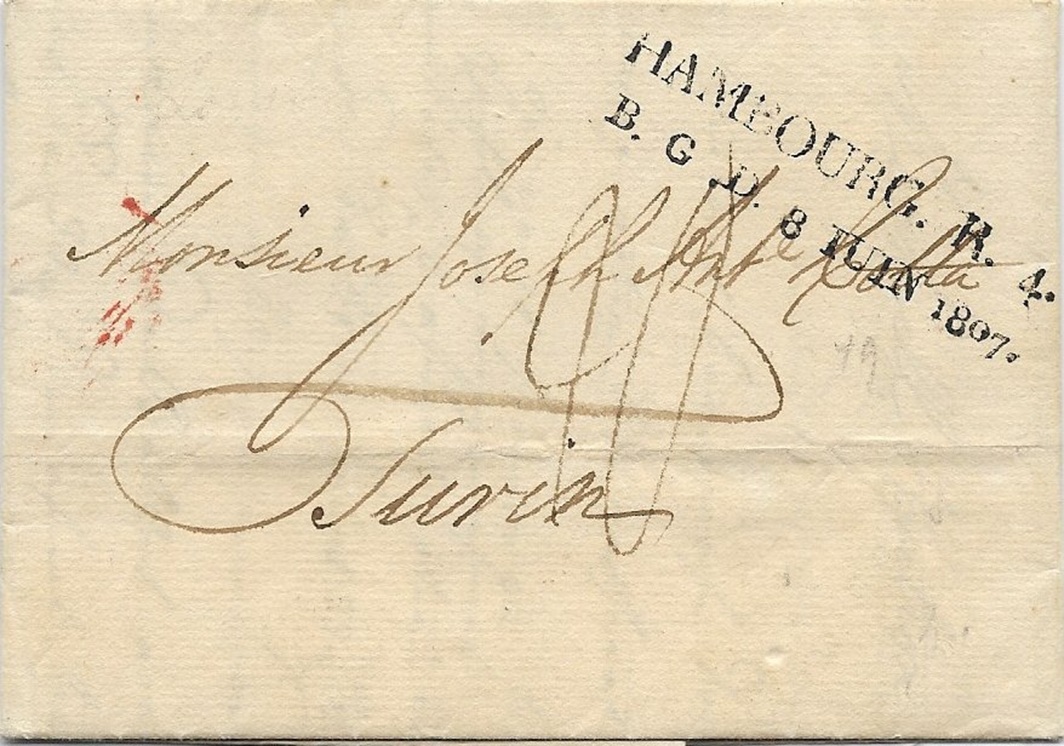 HAMBOURG. R. 4.
B. G. D. 8 IUIN 1807.
Monsieur Joseph Ant<sup>e</sup>
Turin